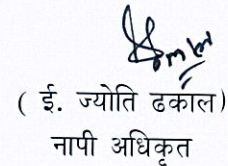 ( ई. ज्योति ढकाल)
नापी अधिकृत